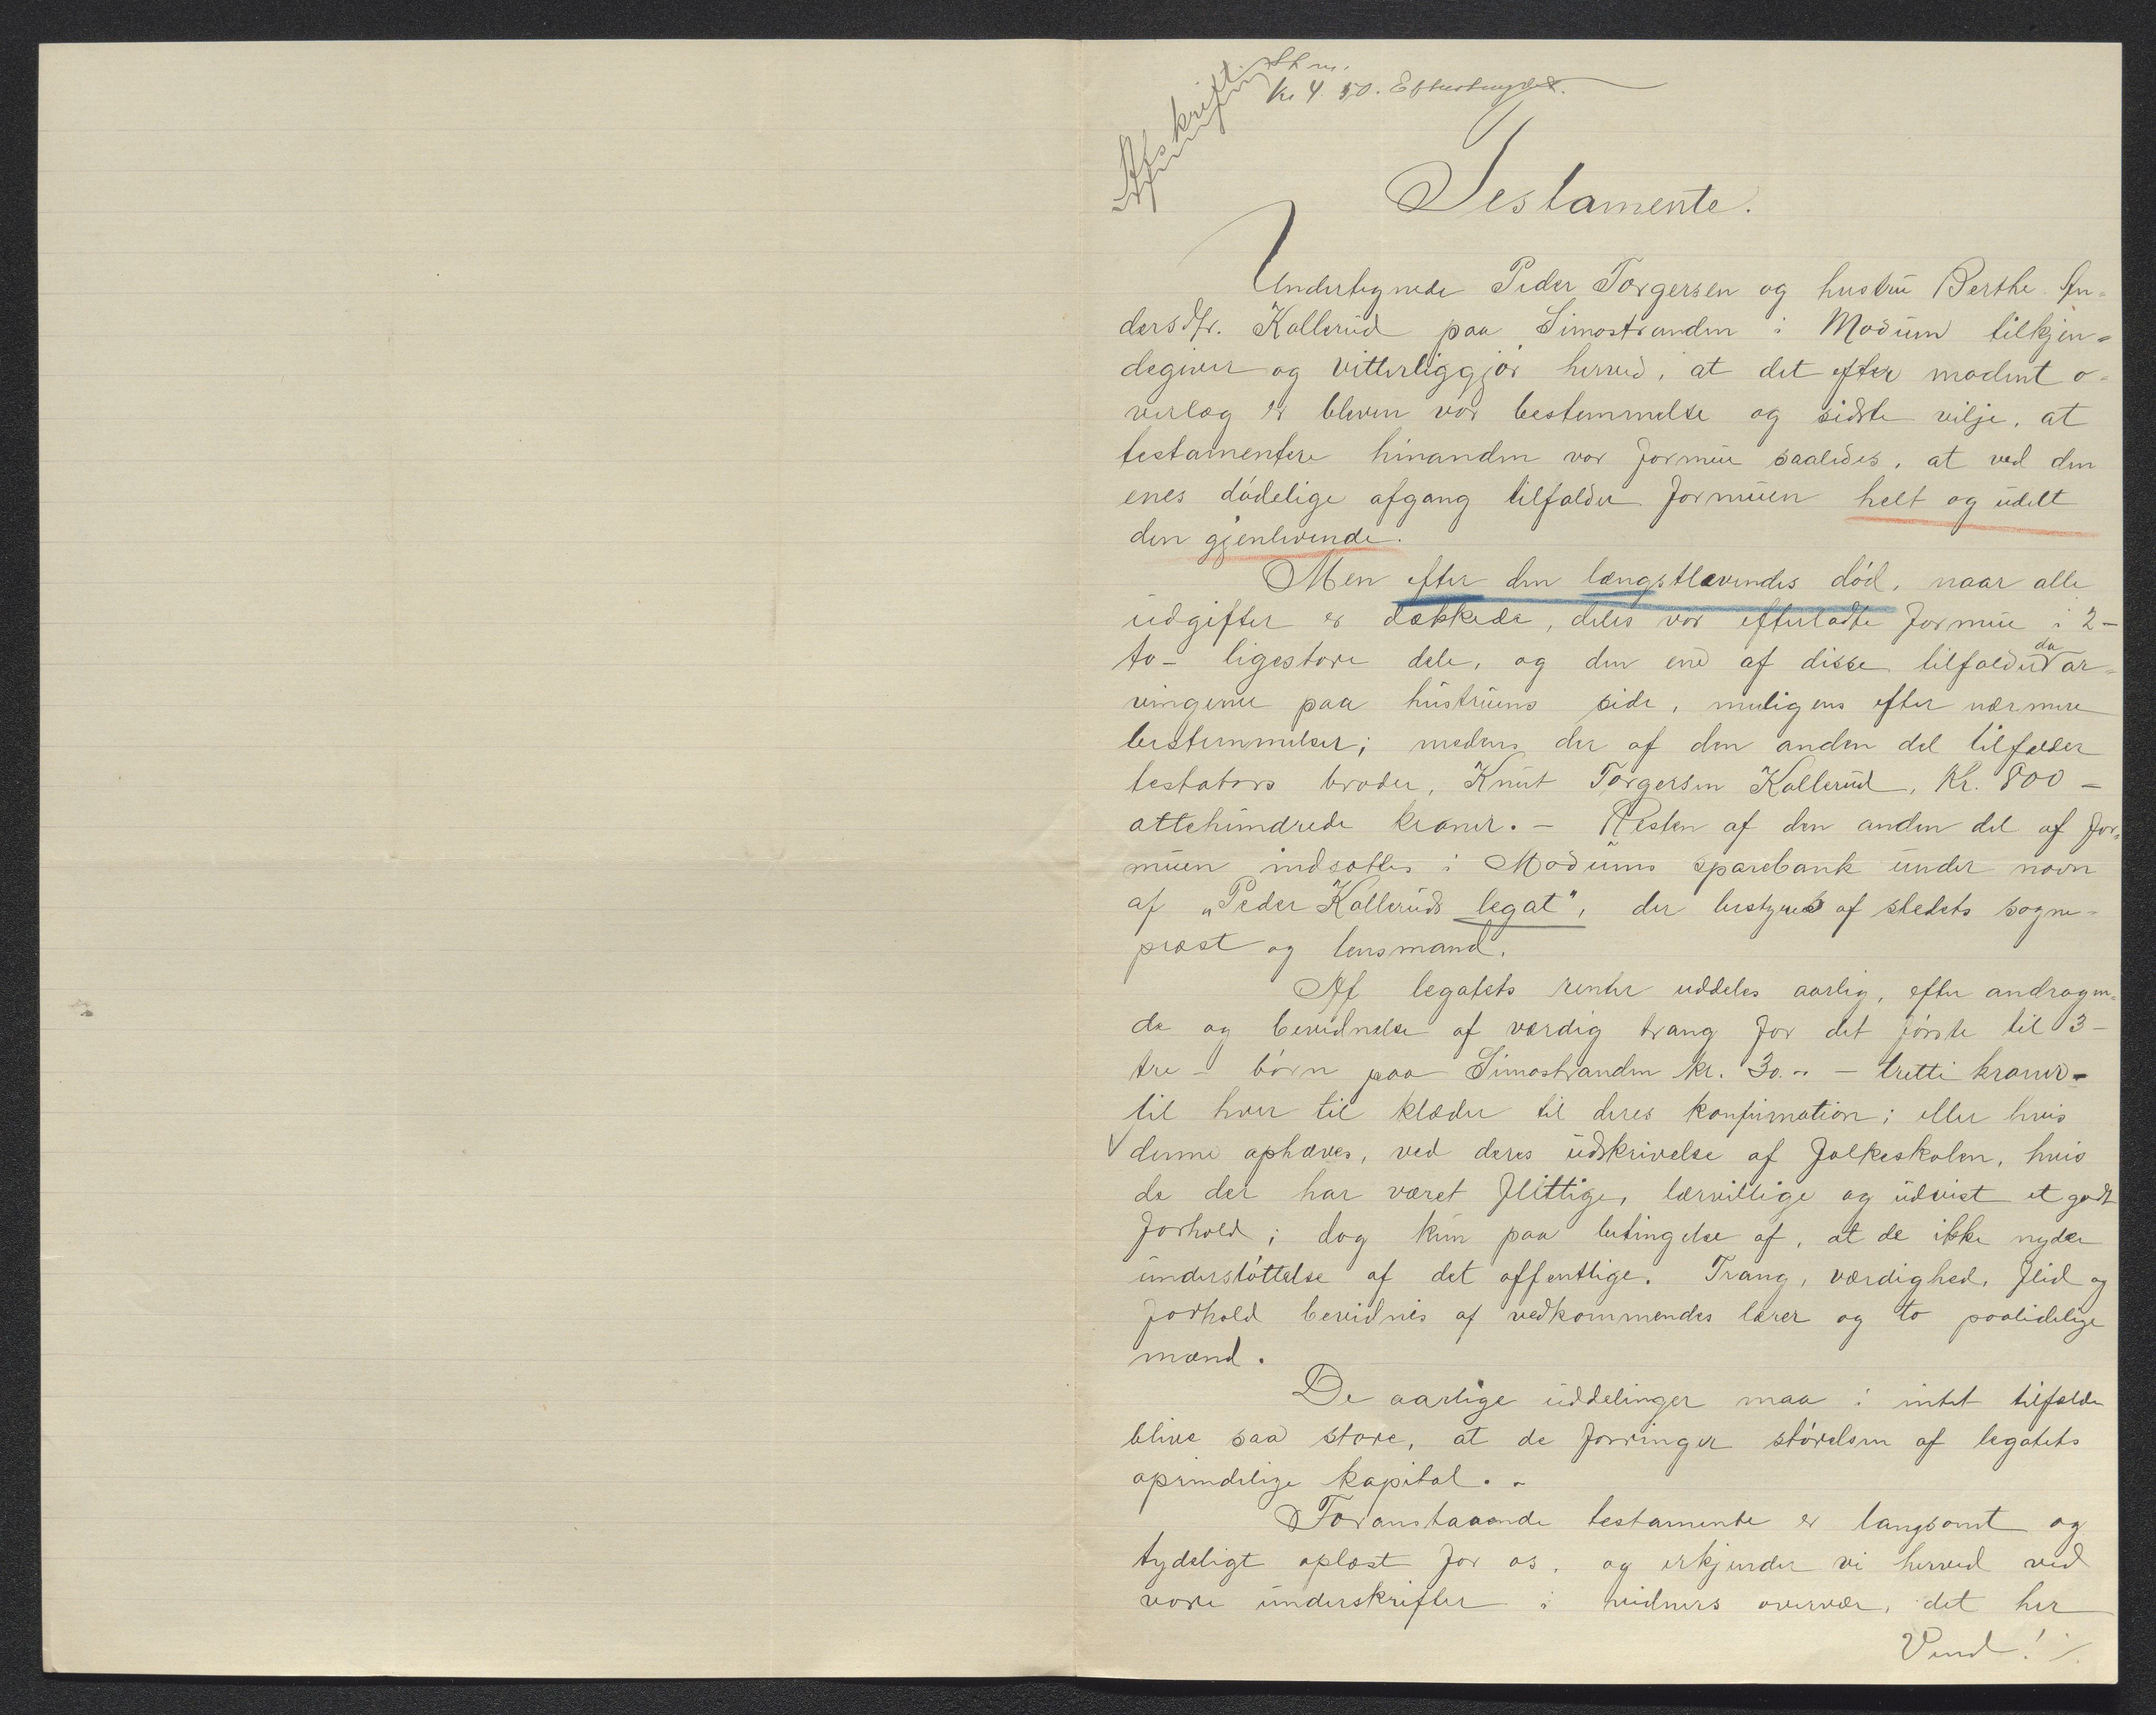 Afskrift.
St. m.
Kr. 4. 50. Efterbrugt.
Testamente.
Undertegnede Peder Torgersen og hustru Berthe An-
dersdtr. Kollerud paa Simostranden i Modum tilkjen-
degiver og vitterliggjør herved, at det efter modent o-
verlæg er bleven vor bestemmelse og sidste vilje, at
testamentere hinanden vor formue saaledes, at ved den
enes dødelige afgang tilfalder formuen helt og udelt
den gjenlevende.
Men efter den længstlævendes død, naar alle
udgifter er dækkede, deles vor efterladte formue i 2-
to- ligestore dele, og den ene af disse tilfalder da ar-
vingerne paa hustruens side, muligens efter nærmere
bestemmelser; medens der af den anden del tilfalder
testators broder, Knut Torgersen Kollerud, Kr. 800 -
ottehundrede kroner. - Resten af den anden del af for-
muen indsættes i Modums sparebank under navn
af „Peder Kolleruds legat", der bestyres af stedets sogne-
præst og lensmand.
Af legatets renter uddeles aarlig, efter andragen-
de og bevidnelse af værdig trang for det første til 3-
tre - børn paa Simostranden kr. 30.- - tretti kroner -
til hver til klæder til deres konfirmation; eller hvis
denne ophæves, ved deres udskrivelse af folkeskolen, hvis
de der har været flittige, lærvillige og udvist et godt
forhold; dog kun paa betingelse af, at de ikke nyder
understøttelse af det offentlige. Trang, værdighed, flid og
forhold bevidnes af vedkommendes lærer og to paalidelige
mænd.
De aarlige uddelinger maa i intet tilfælde
blive saa store, at de forringer størelsen af legatets
oprindelige kapital. -
Foranstaaende testamente er langsomt og
tydeligt oplæst for os, og erkjender vi herved ved
vore underskrifter i vidners overvær, det her
Vend! ·/.